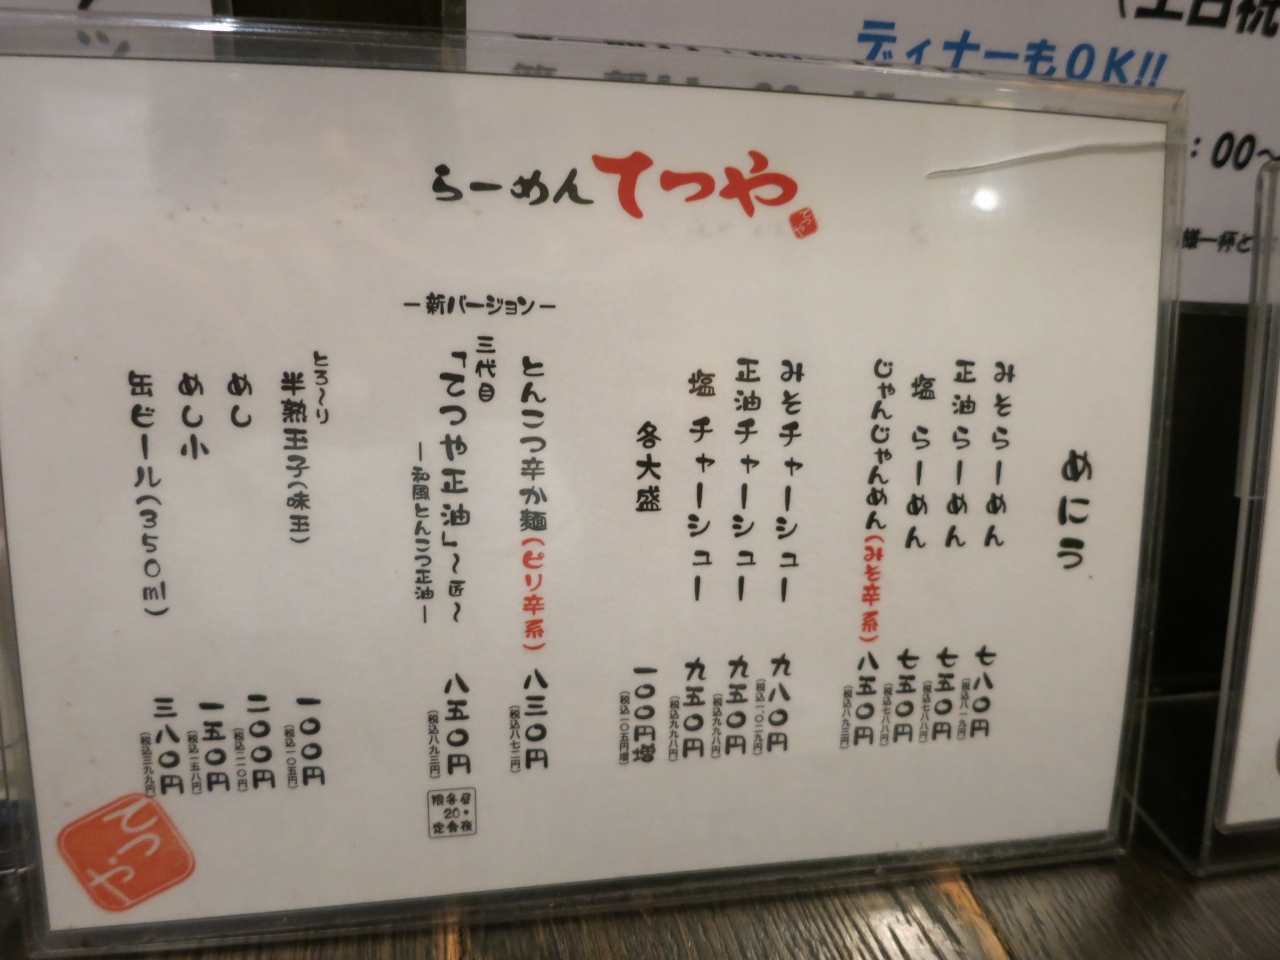 ディナーもOK!!
:00~
らーめん てつや
めにう
みそらーめん 七八〇円 (税込八一九円)
正油らーめん 七五〇円 (税込七八八円)
塩らーめん 七五〇円 (税込七八八円)
じゃんじゃんめん(みそ辛系) 八五〇円 (税込八九三円)
みそチャーシュー 九八〇円 (税込一、〇二九円)
正油チャーシュー 九五〇円 (税込九九八円)
塩チャーシュー 九五〇円 (税込九九八円)
各大盛 一〇〇円増 (税込一〇五円増)
とんこつ辛か麺(ピリ辛系) 八三〇円 (税込八七二円)
―新バージョン―
三代目
「てつや正油」~匠~ 八五〇円 (税込八九三円)
―和風とんこつ正油―
昼・夜
各20食
限定
とろ~り
半熟玉子(味玉) 一〇〇円 (税込一〇五円)
めし 二〇〇円 (税込二一〇円)
めし小 一五〇円 (税込一五八円)
缶ビール(350ml) 三八〇円 (税込三九九円)
てつや